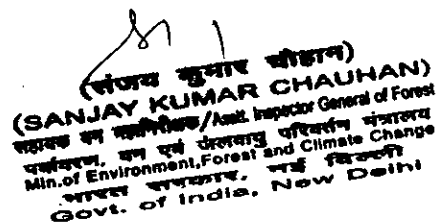 (संजय कुमार चौहान)
(SANJAY KUMAR CHAUHAN)
सहायक वन महानिरीक्षक/Asstt. Inspector General of Forest
पर्यावरण, वन एवं जलवायु परिवर्तन मंत्रालय
Min.of Environment,Forest and Climate Change
भारत सरकार, नई दिल्ली
Govt. of India, New Delhi